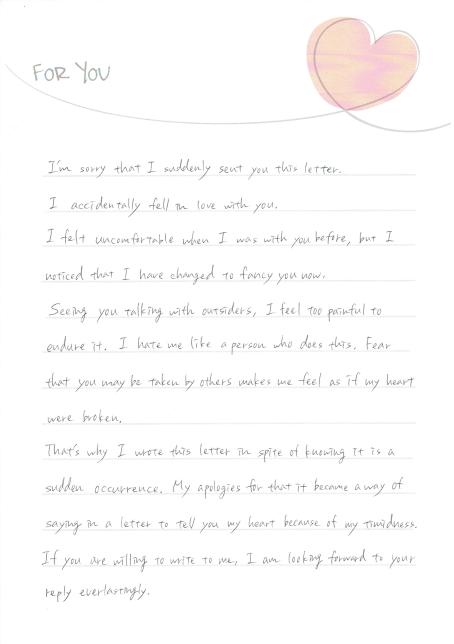 FOR YOU
I'm sorry that I suddenly sent you this letter.
I accidentally fell in love with you.
I felt uncomfortable when I was with you before, but I
noticed that I have changed to fancy you now.
Seeing you talking with outsiders, I feel too painful to
endure it. I hate me like a person who does this. Fear
that you may be taken by others makes me feel as if my heart
were broken.
That's why I wrote this letter in spite of knowing it is a
sudden occurrence. My apologies for that it became a way of
saying in a letter to tell you my heart because of my timidness.
If you are willing to write to me, I am looking forward to your
reply everlastingly.